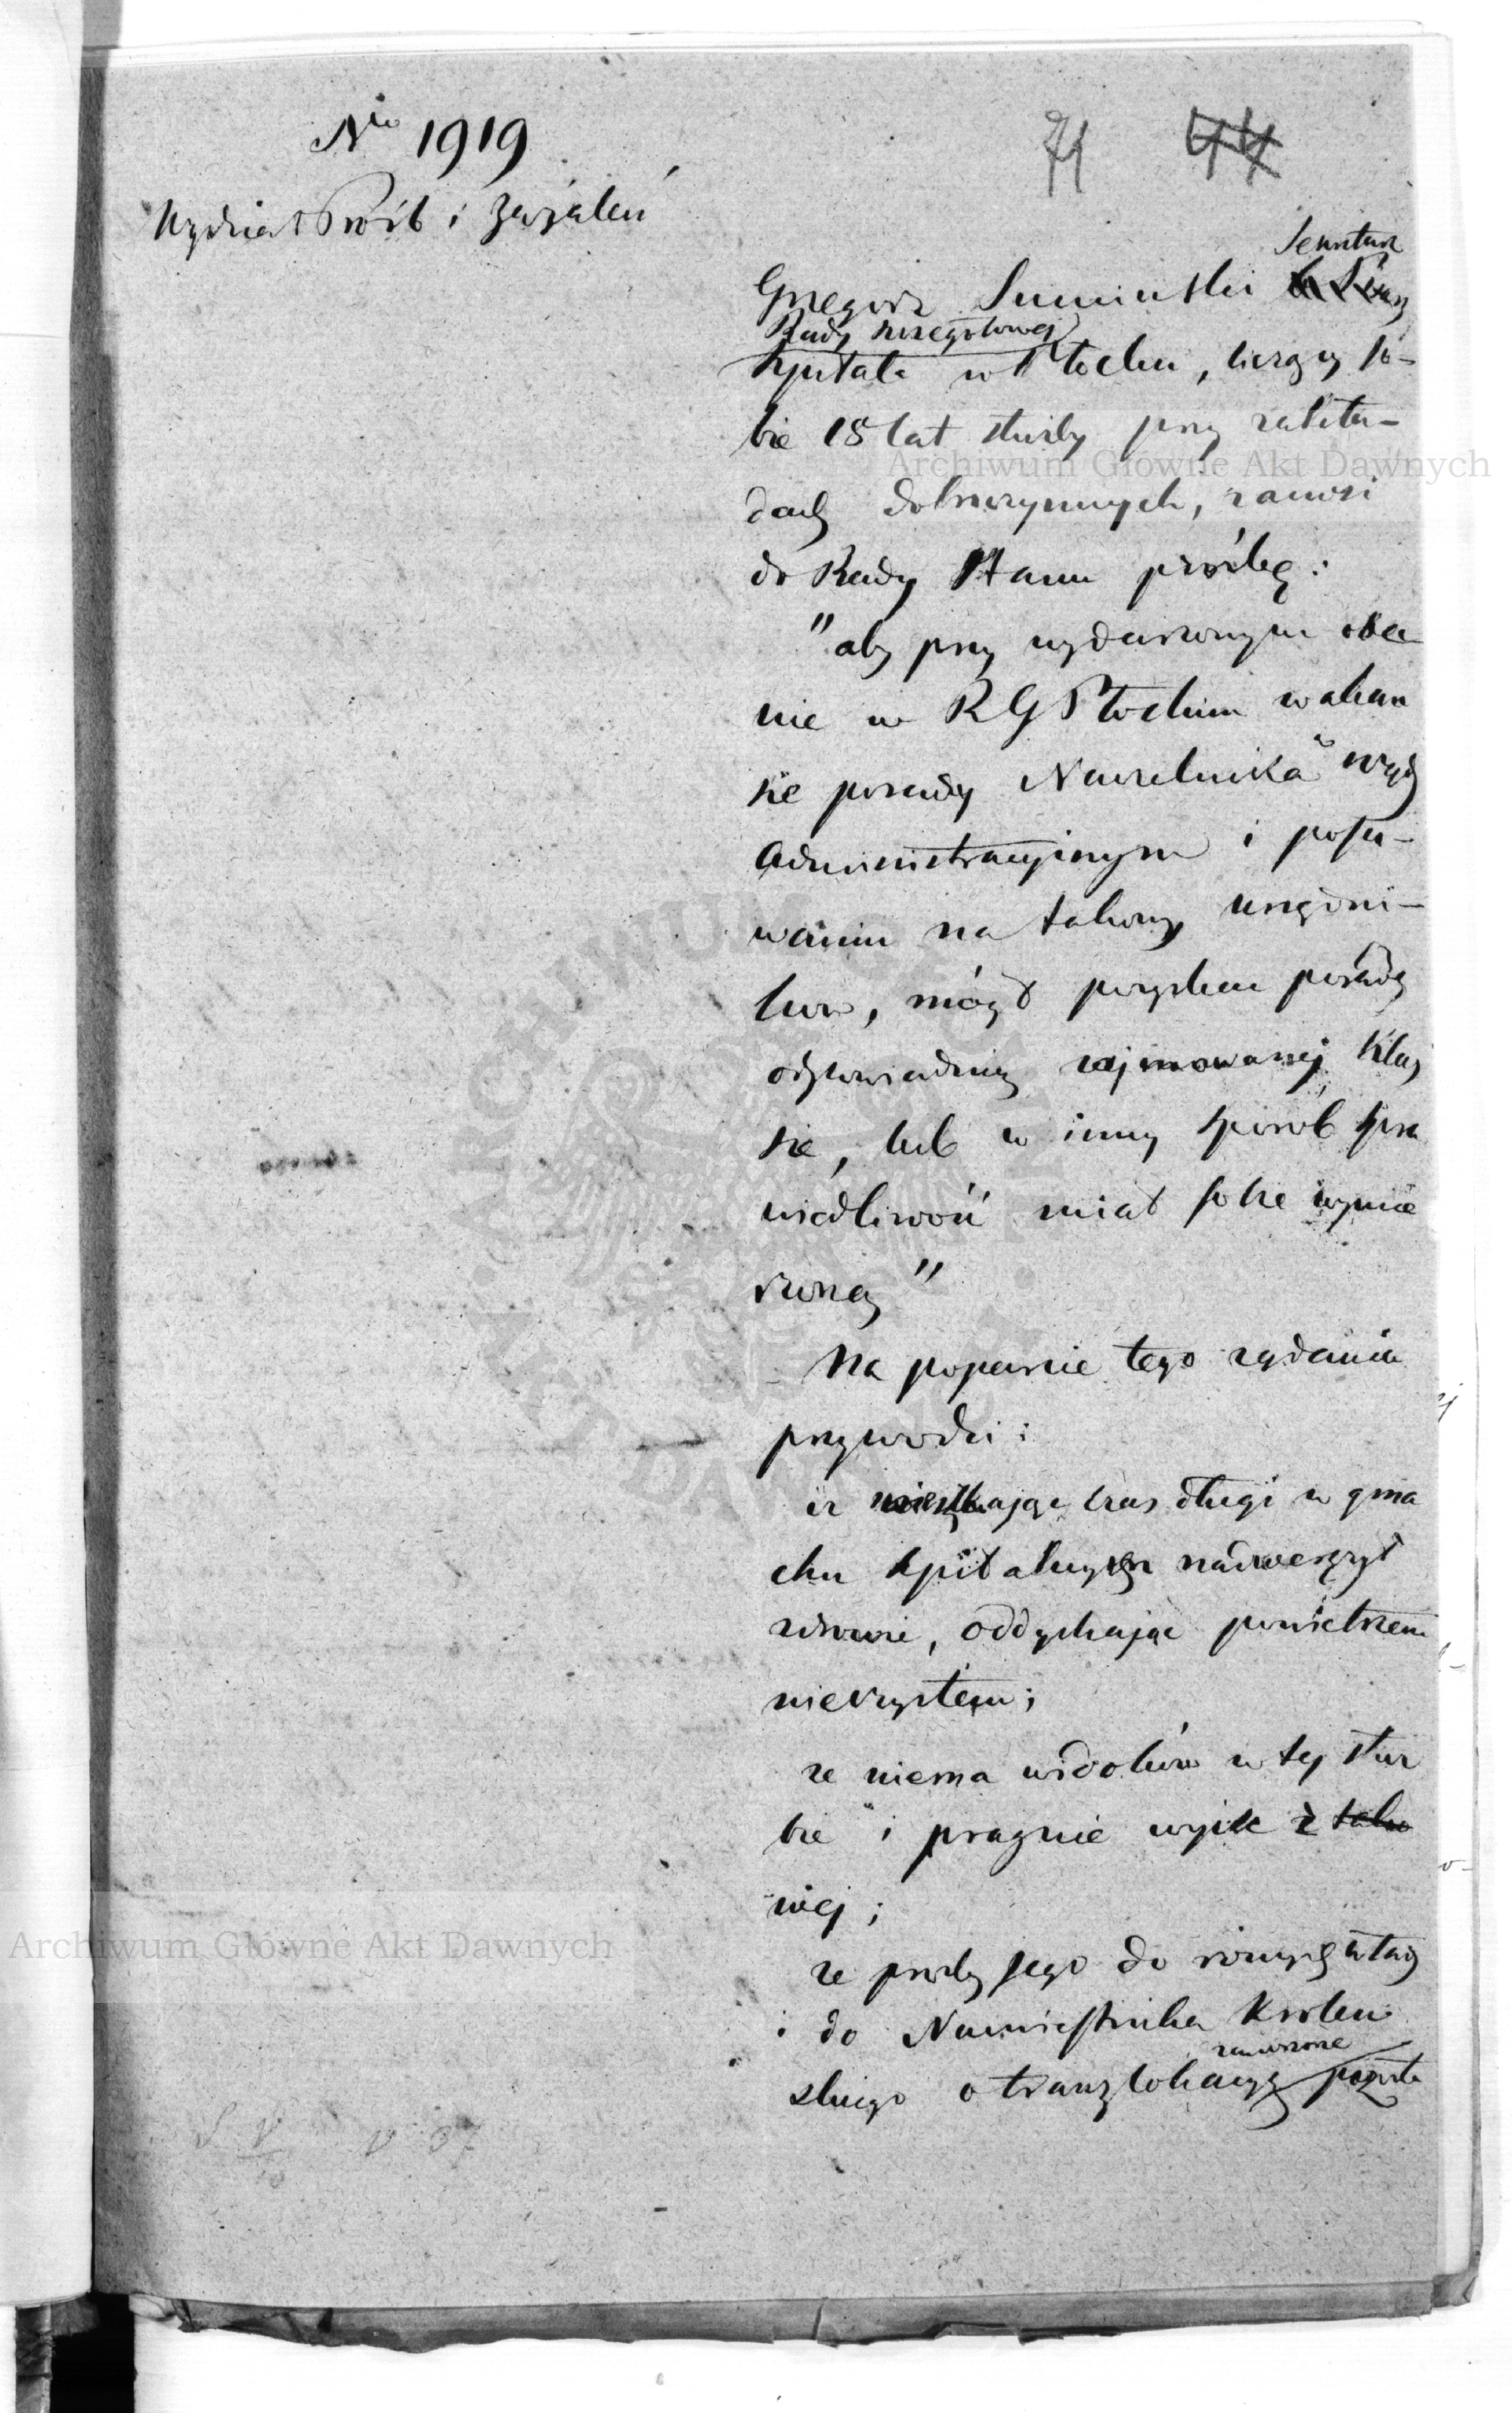 Nro 1919
71 44
Wydział Próśb i Zażaleń
Sekretarz
Grzegorz Sumiński
Rady szczegółowej
szpitala w Płocku, liczący so-
bie 18 lat służby przy zakła-
dach dobroczynnych, zanosi
do Rady Stanu prośbę:
"aby przy wydarzonym obec
nie w RG Płockim wakan
sie posady Naczelnika
Administracyjnym i posu-
waniu na takowy urzędni-
ków, mógł pozyskać posadę
odpowiednią zajmowanej klas
sie, lub w inny sposób spra
wiedliwość miał sobie wymie
rzoną"
Na poparcie tego żądania
przywodzi:
iż mieszkając czas długi w gma
chu szpitalnym nadwerężył
zdrowie, oddychając powietrzem
nieczystem;
że niema widoków w tej służ
bie i pragnie wyjść z
niej;
że prośby jego do różnych władz
i do Namiestnika Króles
zaniesione
kiego o translokacyę pozosta
Archiwum Główne Akt Dawnych
Archiwum Główne Akt Dawnych
ARCHIWUM GŁÓWNE AKT DAWNYCH